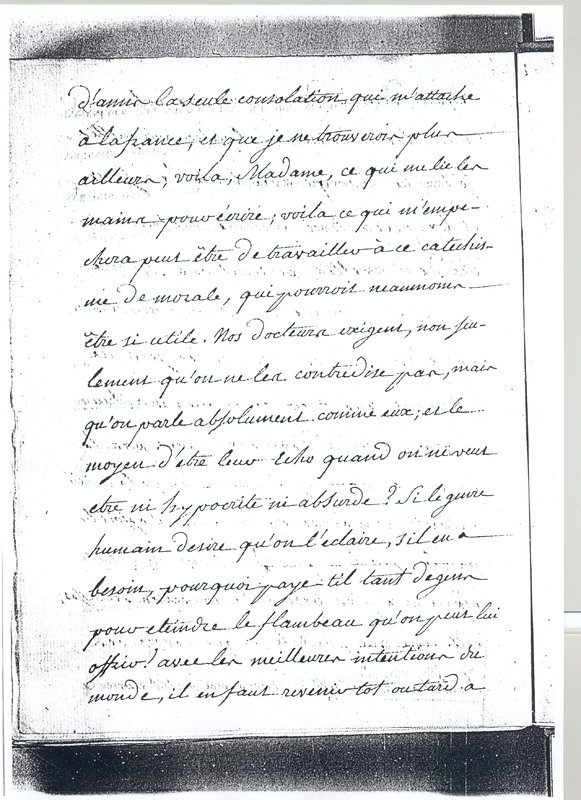 d'amis la seule consolation qui m'attache
à la france, et que je ne trouverois plus
ailleurs; voila, Madame, ce qui me lie les
mains pour écrire; voila ce qui m'empe-
chera peut être de travailler à ce catechis-
me de morale, qui pourroit neanmoins
être si utile. Nos docteurs exigent, non seu-
lement qu'on ne les contredise pas, mais
qu'on parle absolument comme eux; et le
moyen d'etre leur Echo quand on ne veut
etre ni hypocrite ni absurde? Si le genre
humain desire qu'on l'eclaire, s'il en a
besoin, pourquoi paye-t'il tant de gens
pour eteindre le flambeau qu'on peut lui
offrir! avec les meilleures intentions du
monde, il en faut revenir tot ou tard a